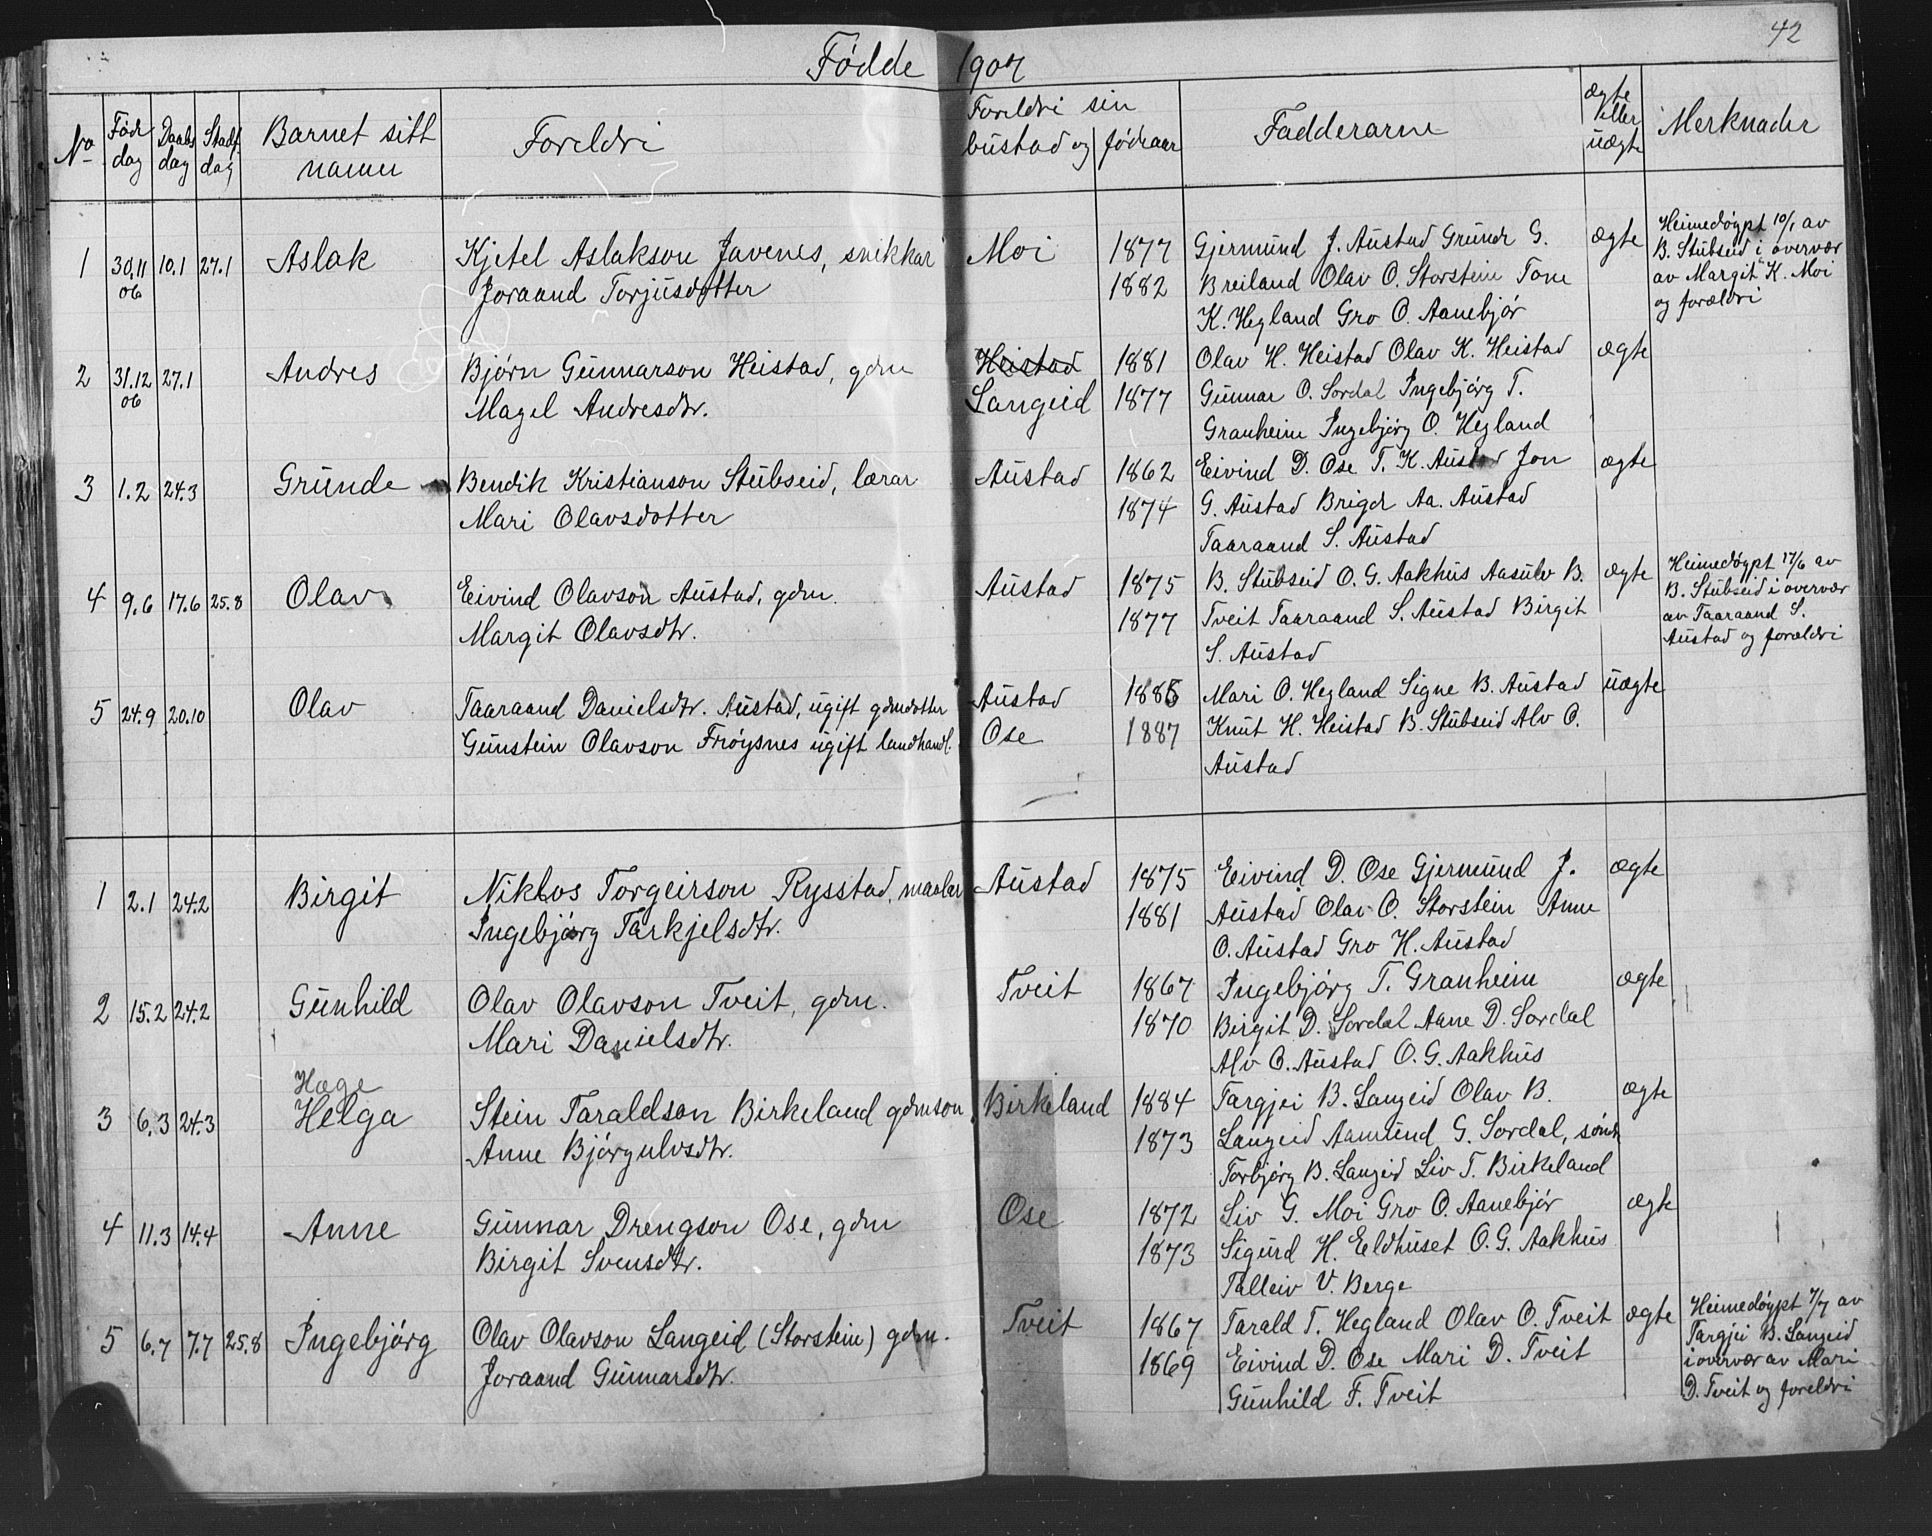 42
Fødde 1907
No Fød dag Daabs dag Stadf. dag Barnet sitt namn Foreldri Foreldri sin bustad og fødeaar Fadderarne ægte eller uægte Merknader
1 30.11 06 10.1 27.1 Aslak Kjetel Aslakson Javenes, snikkar Moi 1877 Gjermund J. Austad Grunde G. ægte Heimedøypt 10/1 av
Joraand Torjusdotter 1882 Breiland Olav O. Storstein Tone B. Stubseid i overvær
K. Hegland Gro O. Aanebjør av Margit K. Moi
og forældri
2 31.12 06 27.1 Andres Bjørn Gunnarson Heistad, gdm Heistad 1881 Olav H. Heistad Olav K. Heistad ægte
Magel Andresdtr. Langeid 1877 Gunnar O. Sordal Ingebjørg T.
Granheim Ingebjørg O. Hegland
3 1.2 24.3 Grunde Bendik Kristianson Stubseid, lærar Austad 1862 Eivind D. Ose T. K. Austad Jon ægte
Mari Olavsdotter 1874 G. Austad Briger Aa. Austad
Taaraand S. Austad
4 9.6 17.6 25.8 Olav Eivind Olavson Austad, gdm. Austad 1875 B. Stubseid O. G. Aakhus Aasulv B. ægte Heimedøypt 17/6 av
Margit Olavsdtr. 1877 Tveit Taaraand S. Austad Birgit B. Stubseid i overvær
S. Austad av Taaraand S.
Austad og forældri
5 24.9 20.10 Olav Taaraand Danielsdtr. Austad, ugift gdmdotter Austad 1885 Mari O. Hegland Signe B. Austad uægte
Gunstein Olavson Frøysnes ugift landhandl. Ose 1887 Knut H. Heistad B. Stubseid Alv O.
Austad
1 2.1 24.2 Birgit Niklos Torgeirson Rysstad, maalar Austad 1875 Eivind D. Ose Gjermund J. ægte
Ingebjørg Tarkjelsdtr. 1881 Austad Olav O. Storstein Anne
O. Austad Gro H. Austad
2 15.2 24.2 Gunhild Olav Olavson Tveit, gdm. Tveit 1867 Ingebjørg T. Granheim ægte
Mari Danielsdtr. 1870 Birgit D. Sordal Aane D. Sordal
Alv O. Austad O. G. Aakhus
Hæge
3 6.3 24.3 Helga Stein Taraldson Birkeland gdmson Birkeland 1884 Targjei B. Langeid Olav B. ægte
Anne Bjørgulvsdtr. 1873 Langeid Aamund G. Sordal, søndr
Torbjørg B. Langeid Liv T. Birkeland
4 11.3 14.4 Anne Gunnar Drengson Ose, gdm Ose 1872 Liv G. Moi Gro O. Aanebjør ægte
Birgit Svensdtr. 1873 Sigurd H. Eldhuset O. G. Aakhus
Talleiv V. Berge
5 6.7 7.7 25.8 Ingebjørg Olav Olavson Langeid (Storstein) gdm. Tveit 1867 Tarald T. Hegland Olav O. Tveit ægte Heimedøypt 7/7 av
Joraand Gunnarsdtr. 1869 Eivind D. Ose Mari D. Tveit Targjei B. Langeid
Gunhild F. Tveit i overvær av Mari
D. Tveit og foreldri